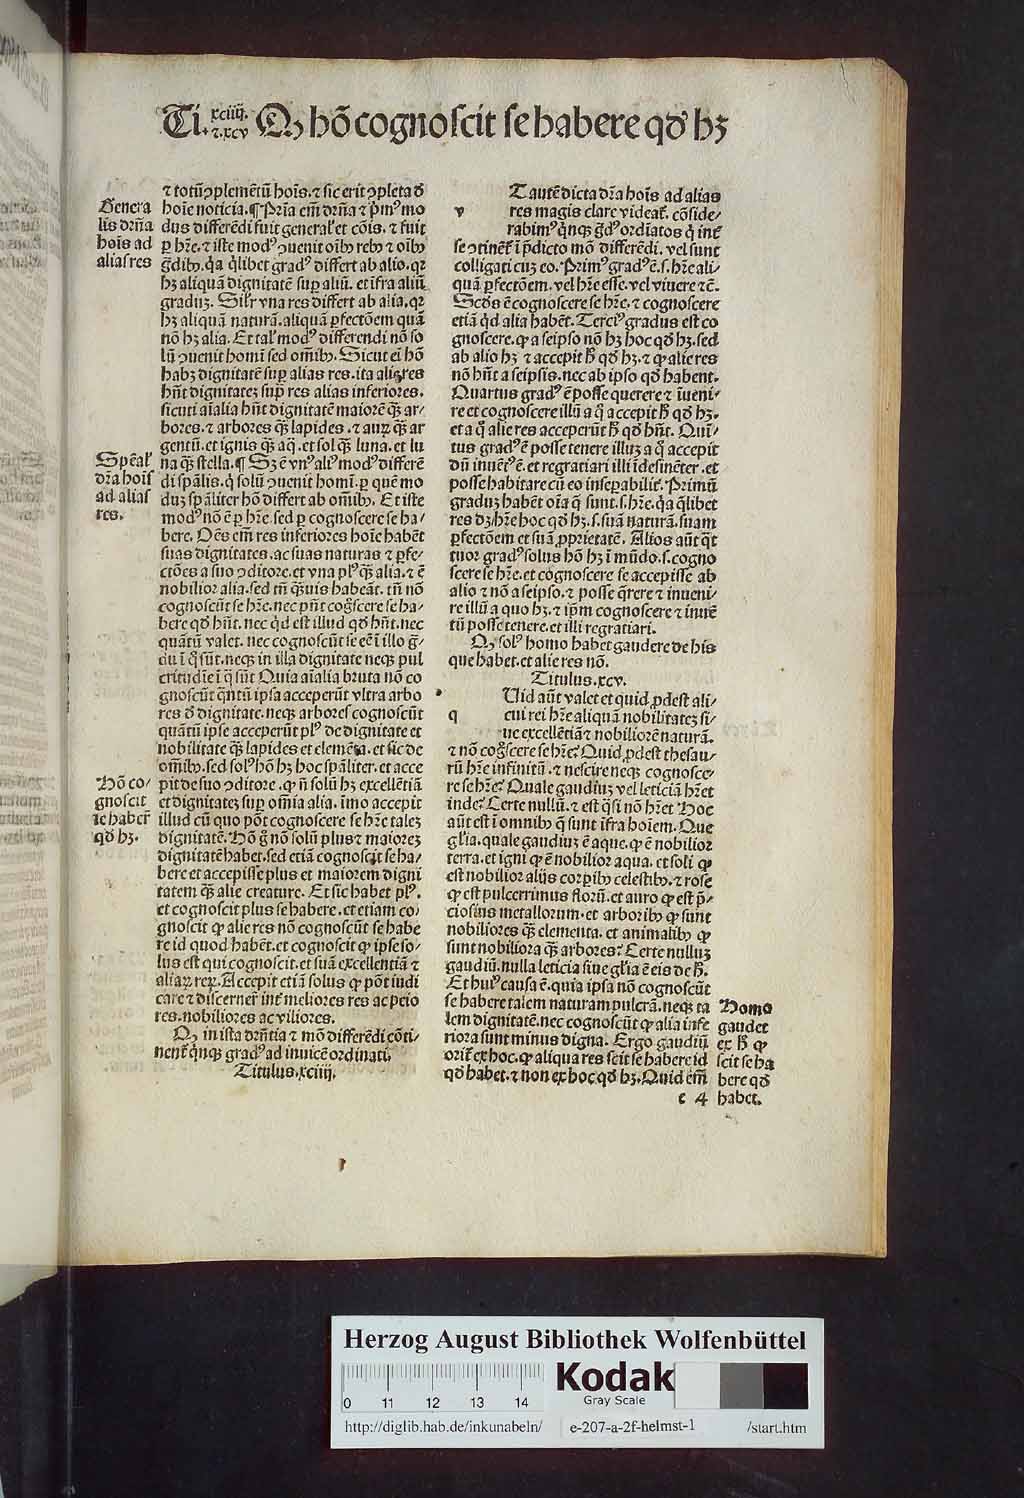 Ti. xciiij. ⁊.xcv Qꝫ hõ cognoscit se habere qđ hꝫ
⁊ totũ ꝯplemẽtũ hoĩs.⁊ sic erit ꝯpleta đ
hoĩe noticia.¶ Pr̃ia em̃ dr̃ña ⁊ p̃mꝰ mo
dus differẽdi fuit general̕ et cõis. ⁊ fuit
ꝑ hr̃e. ⁊ iste modꝰ ꝯuenit oĩbꝫ rebꝫ ⁊ oĩbꝫ
g̃dibꝫ. q̃a q̃libet gradꝰ differt ab alio. qꝛ
hꝫ aliquã dignitatẽ suꝑ aliũ. et ĩfra aliũ
gradũ. Sil̕r vna res differt ab alia. qꝛ
hꝫ aliquã naturã. aliquã ꝑfectõem quã
nõ hꝫ alia. Et tal̕ modꝰ differendi nõ so
lũ ꝯuenit homĩ sed om̃ibꝫ. Sicut ei̇̃ hõ
habꝫ dignitatẽ suꝑ alias res. ita alię res
hñt dignitates suꝑ res alias inferiores.
sicuti aĩalia hñt dignitatẽ maiorẽ q̃ꝫ ar/
bores. ⁊ arbores q̃ꝫ lapides. ⁊ auꝝ q̃ꝫ ar
gentũ. et ignis q̃ꝫ aq̃. et sol q̃ꝫ luna. et lu
na q̃ꝫ stella. ¶ Sꝫ ẽ vnꝰ altꝰ modꝰ differẽ
di sp̃alis. q̃ solũ ꝯuenit homĩ. ꝑ quẽ mo
duꝫ sp̃aliter hõ differt ab om̃ibꝫ. Et iste
modꝰ nõ ẽ ꝑ hr̃e. sed ꝑ cognoscere se ha/
bere. Oẽs em̃ res inferiores hoĩe habẽt
suas dignitates. ac suas naturas ⁊ ꝑfe/
ctões a suo ꝯditore. et vna plꝰ q̃ꝫ alia. ⁊ ẽ
nobilior alia. sed tñ q̃ꝫuis habeãt. tñ nõ
cognoscũt se hr̃e. nec pñt cog̃scere se ha/
bere qđ hñt. nec q̃d est illud qđ hñt. nec
quãtũ valet. nec cognoscũt se eẽ ĩ illo g̃/
du ĩ q̃ sũt. neqꝫ in illa dignitate neqꝫ pul
critudĩe ĩ q̃ sũt Quia aĩalia bruta nõ co
gnoscũt q̃ntũ ipsa acceperũt vltra arbo
res đ dignitate. neqꝫ arbores cognoscũt
quãtũ ipse acceperũt plꝰ de dignitate et
nobilitate q̃ꝫ lapides et elemẽta. et sic de
om̃ibꝫ. sed solꝰ hõ hꝫ hoc sp̃aliter. et acce
pit de suo ꝯditore. ꝙ ñ solũ hꝫ excellẽtiã
et dignitateꝫ suꝑ om̃ia alia. ĩmo accepit
illud cũ quo põt cognoscere se hr̃e taleꝫ
dignitatẽ. Hõ g̃ nõ solũ plus ⁊ maiorẽꝫ
dignitatẽ habet. sed etiã cognoscit se ha/
bere et accepisse plus et maiorem digni
tatem q̃ꝫ alie creature. Et sic habet plꝰ.
et cognoscit plus se habere. et etiam co/
gnoscit ꝙ alie res nõ cognoscũt se habe
re id quod habẽt. et cognoscit ꝙ ipse so/
lus est qui cognoscit. et suã excellentiã ⁊
aliaꝝ reꝝ. Accepit etiã solus ꝙ põt iudi
care ⁊ discernere̕ int̕ meliores res ac peio
res. nobiliores ac viliores.
Qꝫ in ista dr̃ñtia ⁊ mõ differẽdi cõti/
nent̕ q̃nqꝫ gradꝰ ad inuicẽ ordinati.
Titulus.xciiij.
Genera
lis dr̃ña
hoĩs ad
alias res
Sp̃eal̕
dr̃a hoĩs
ad alias
res.
Hõ co/
gnoscit
se haber̃
qđ hꝫ.
v
T autẽ dicta dr̃a hoĩs ad alias
res magis clare videat̕. cõside/
rabimꝰ q̃nqꝫ g̃dꝰ ordĩatos q̃ int̕
se ꝯtinẽt̕ ĩ p̃dicto mõ differẽdi. vel sunt
colligati cuꝫ eo. Primꝰ gradꝰ ẽ. s. hr̃e ali/
quã ꝑfectõem. vel hr̃e esse. vel viuere ⁊c̃.
Scđs ẽ cognoscere se hr̃e. ⁊ cognoscere
etiã q̃d alia habẽt. Terciꝰ gradus est co
gnoscere. ꝙ a seipso nõ hꝫ hoc qđ hꝫ. sed
ab alio hꝫ ⁊ accepit h̃ qđ hꝫ. ⁊ ꝙ alie res
nõ hñt a seipsis. nec ab ipso qđ habent.
Quartus gradꝰ ẽ posse querere ⁊ ĩueni/
re et cognoscere illũ a q̃ accepit h̃ qđ hꝫ.
et a q̃ alie res acceperũt h̃ qđ hñt. Quĩ/
tus gradꝰ ẽ posse tenere illuꝫ a q̃ accepit
dũ inuẽtꝰ ẽ. et regratiari illi ĩdesinẽter. et
posse habitare cũ eo inseꝑabilit̕. Primũ
graduꝫ habẽt oĩa q̃ sunt. s. hr̃e. q̃a q̃libet
res dꝫ hr̃e hoc qđ hꝫ. s. suã naturã. suam
ꝑfectõem et suã ꝓprietatẽ. Alios aũt q̃t
tuor gradꝰ solus hõ hꝫ ĩ mũdo. s. cogno
scere se hr̃e. et cognoscere se accepisse ab
alio ⁊ nõ a seipso. ⁊ posse q̃rere ⁊ inueni/
re illũ a quo hꝫ. ⁊ ip̃m cognoscere ⁊ inuẽ
tũ posse tenere. et illi regratiari.
Qꝫ solꝰ homo habet gaudere de his
que habet. et alie res nõ.
Titulus.xcv.
q
Uid aũt valet et quid ꝓdest ali/
cui rei hr̃e aliquã nobilitateꝫ si/
ue excellẽtiã ⁊ nobiliorẽ naturã.
⁊ nõ cog̃scere se hr̃e? Quid ꝓdest thesau/
rũ hr̃e infinitũ. ⁊ nescire neqꝫ cognosce/
re se hr̃e? Quale gaudiuꝫ vel leticiã hr̃et
inde? Certe nullũ. ⁊ est q̃si nõ hr̃et Hoc
aũt est ĩ omnibꝫ q̃ sunt ĩfra hoĩem. Que
gl̃ia. quale gaudiuꝫ ẽ aque. ꝙ ẽ nobilior
terra. et igni ꝙ ẽ nobilior aqua. et soli ꝙ
est nobilior alijs corꝑibꝫ celestibꝫ. ⁊ rose
ꝙ est pulcerrimus florũ. et auro ꝙ est p̃/
ciosius metallorum. et arboribꝫ ꝙ sunt
nobiliores q̃ꝫ elementa. et animalibꝫ ꝙ
sunt nobiliora q̃ꝫ arbores? Certe nulluꝫ
gaudiũ. nulla leticia siue gl̃ia ẽ eis de h̃.
Et huiꝰ causa ẽ. quia ipsa nõ cognoscũt
se habere talem naturam pulcrã. neqꝫ ta
lem dignitatẽ. nec cognoscũt ꝙ alia infe
riora sunt minus digna. Ergo gaudiũ
orit̕ ex hoc. ꝙ aliqua res scit se habere id
qđ habet. ⁊ non ex hoc qđ hꝫ. Quid em̃
c 4
Homo
gaudet
ex h̃ ꝙ
scit se ha
bere qđ
habet.
Herzog August Bibliothek Wolfenbüttel
0 11 12 13 14
Kodak
Gray Scale
http://diglib.hab.de/inkunabeln/ e-207-a-2f-helmst-1 /start.htm